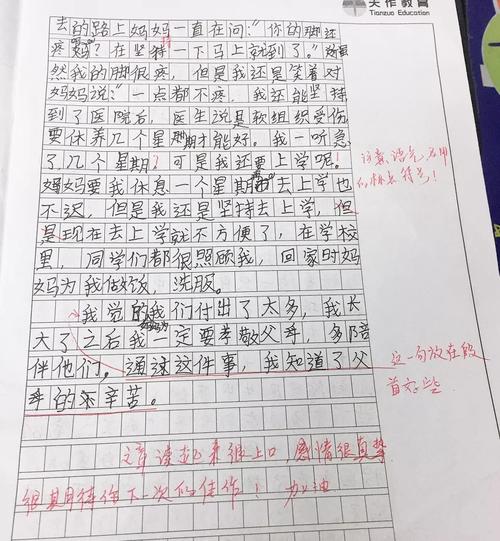 天作教育
Tianzuo Education
去的路上妈妈一直在问:“你的脚还
疼吗?在坚持一下马上就到了。”虽
然我的脚很疼,但是我还是笑着对
妈妈说:“一点都不疼,我还能坚持
到了医院后,医生说是软组织受伤,
要休养几个星期才能好。我一听急
了几个星期?可是我还要上学呢!
妈妈要我休息一个星期去上学也
不迟,但是我还是坚持去上学,但
是现在去上学就不方便了,在学校
里,同学们都很照顾我,回家时妈
妈为我做好饭,洗服。
我觉的我们付出了太多,我长
大了之后我一定要孝敬父母,多陪
伴他们。通过这件事,我知道了父
母的辛苦。
注意语气,
的标点符号!
这一句放在段
首
文章读起来很上口,感情很真挚
很期待你下一次的佳作!加油